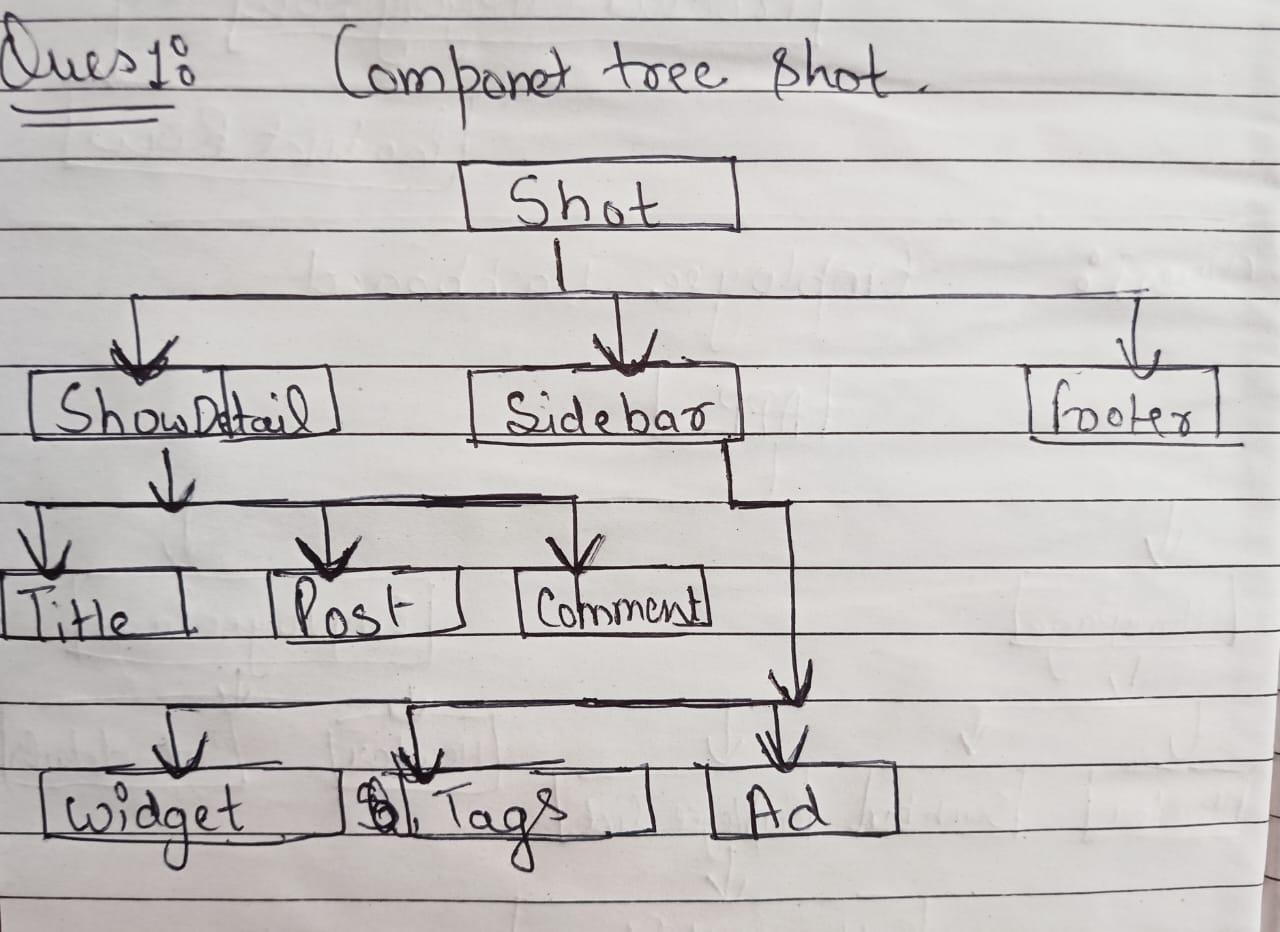 Ques 1: Componet tree Shot.
Shot
ShowDetail Sidebar footer
Title Post Comment
Widget Tags Ad